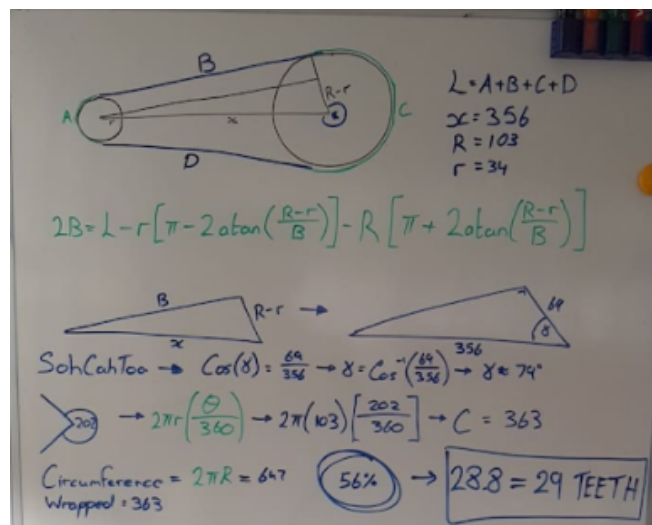 B
R-r
A
r
x
C
D
L=A+B+C+D
x=356
R=103
r=34
2B=L-r[π-2atan((R-r)/B)]-R[π+2atan((R-r)/B)]
B
R-r →
x
69
γ
356
SohCahToa → Cos(γ)=69/356 → γ=Cos⁻¹(69/356) → γ≈74°
202 → 2πr(θ/360) → 2π(103)[202/360] → C = 363
Circumference = 2πR = 647
Wrapped = 363
56% → 28.8 = 29 TEETH